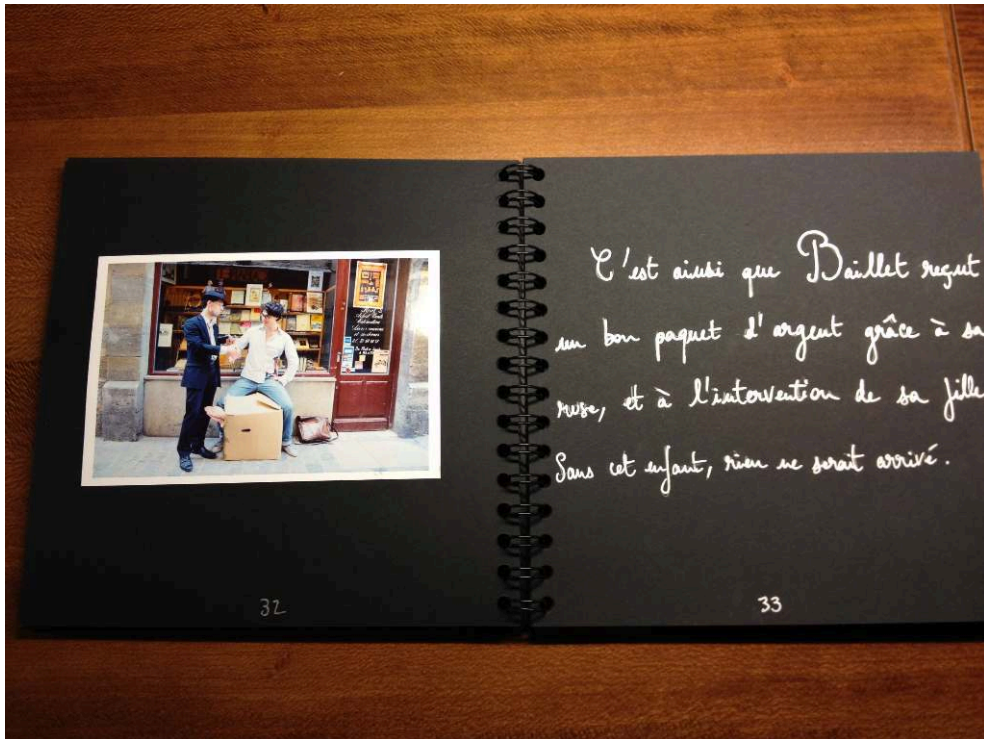 32
C'est ainsi que Baillet reçut
un bon paquet d'argent grâce à sa
ruse, et à l'intervention de sa fille
Sans cet enfant, rien ne serait arrivé.
33